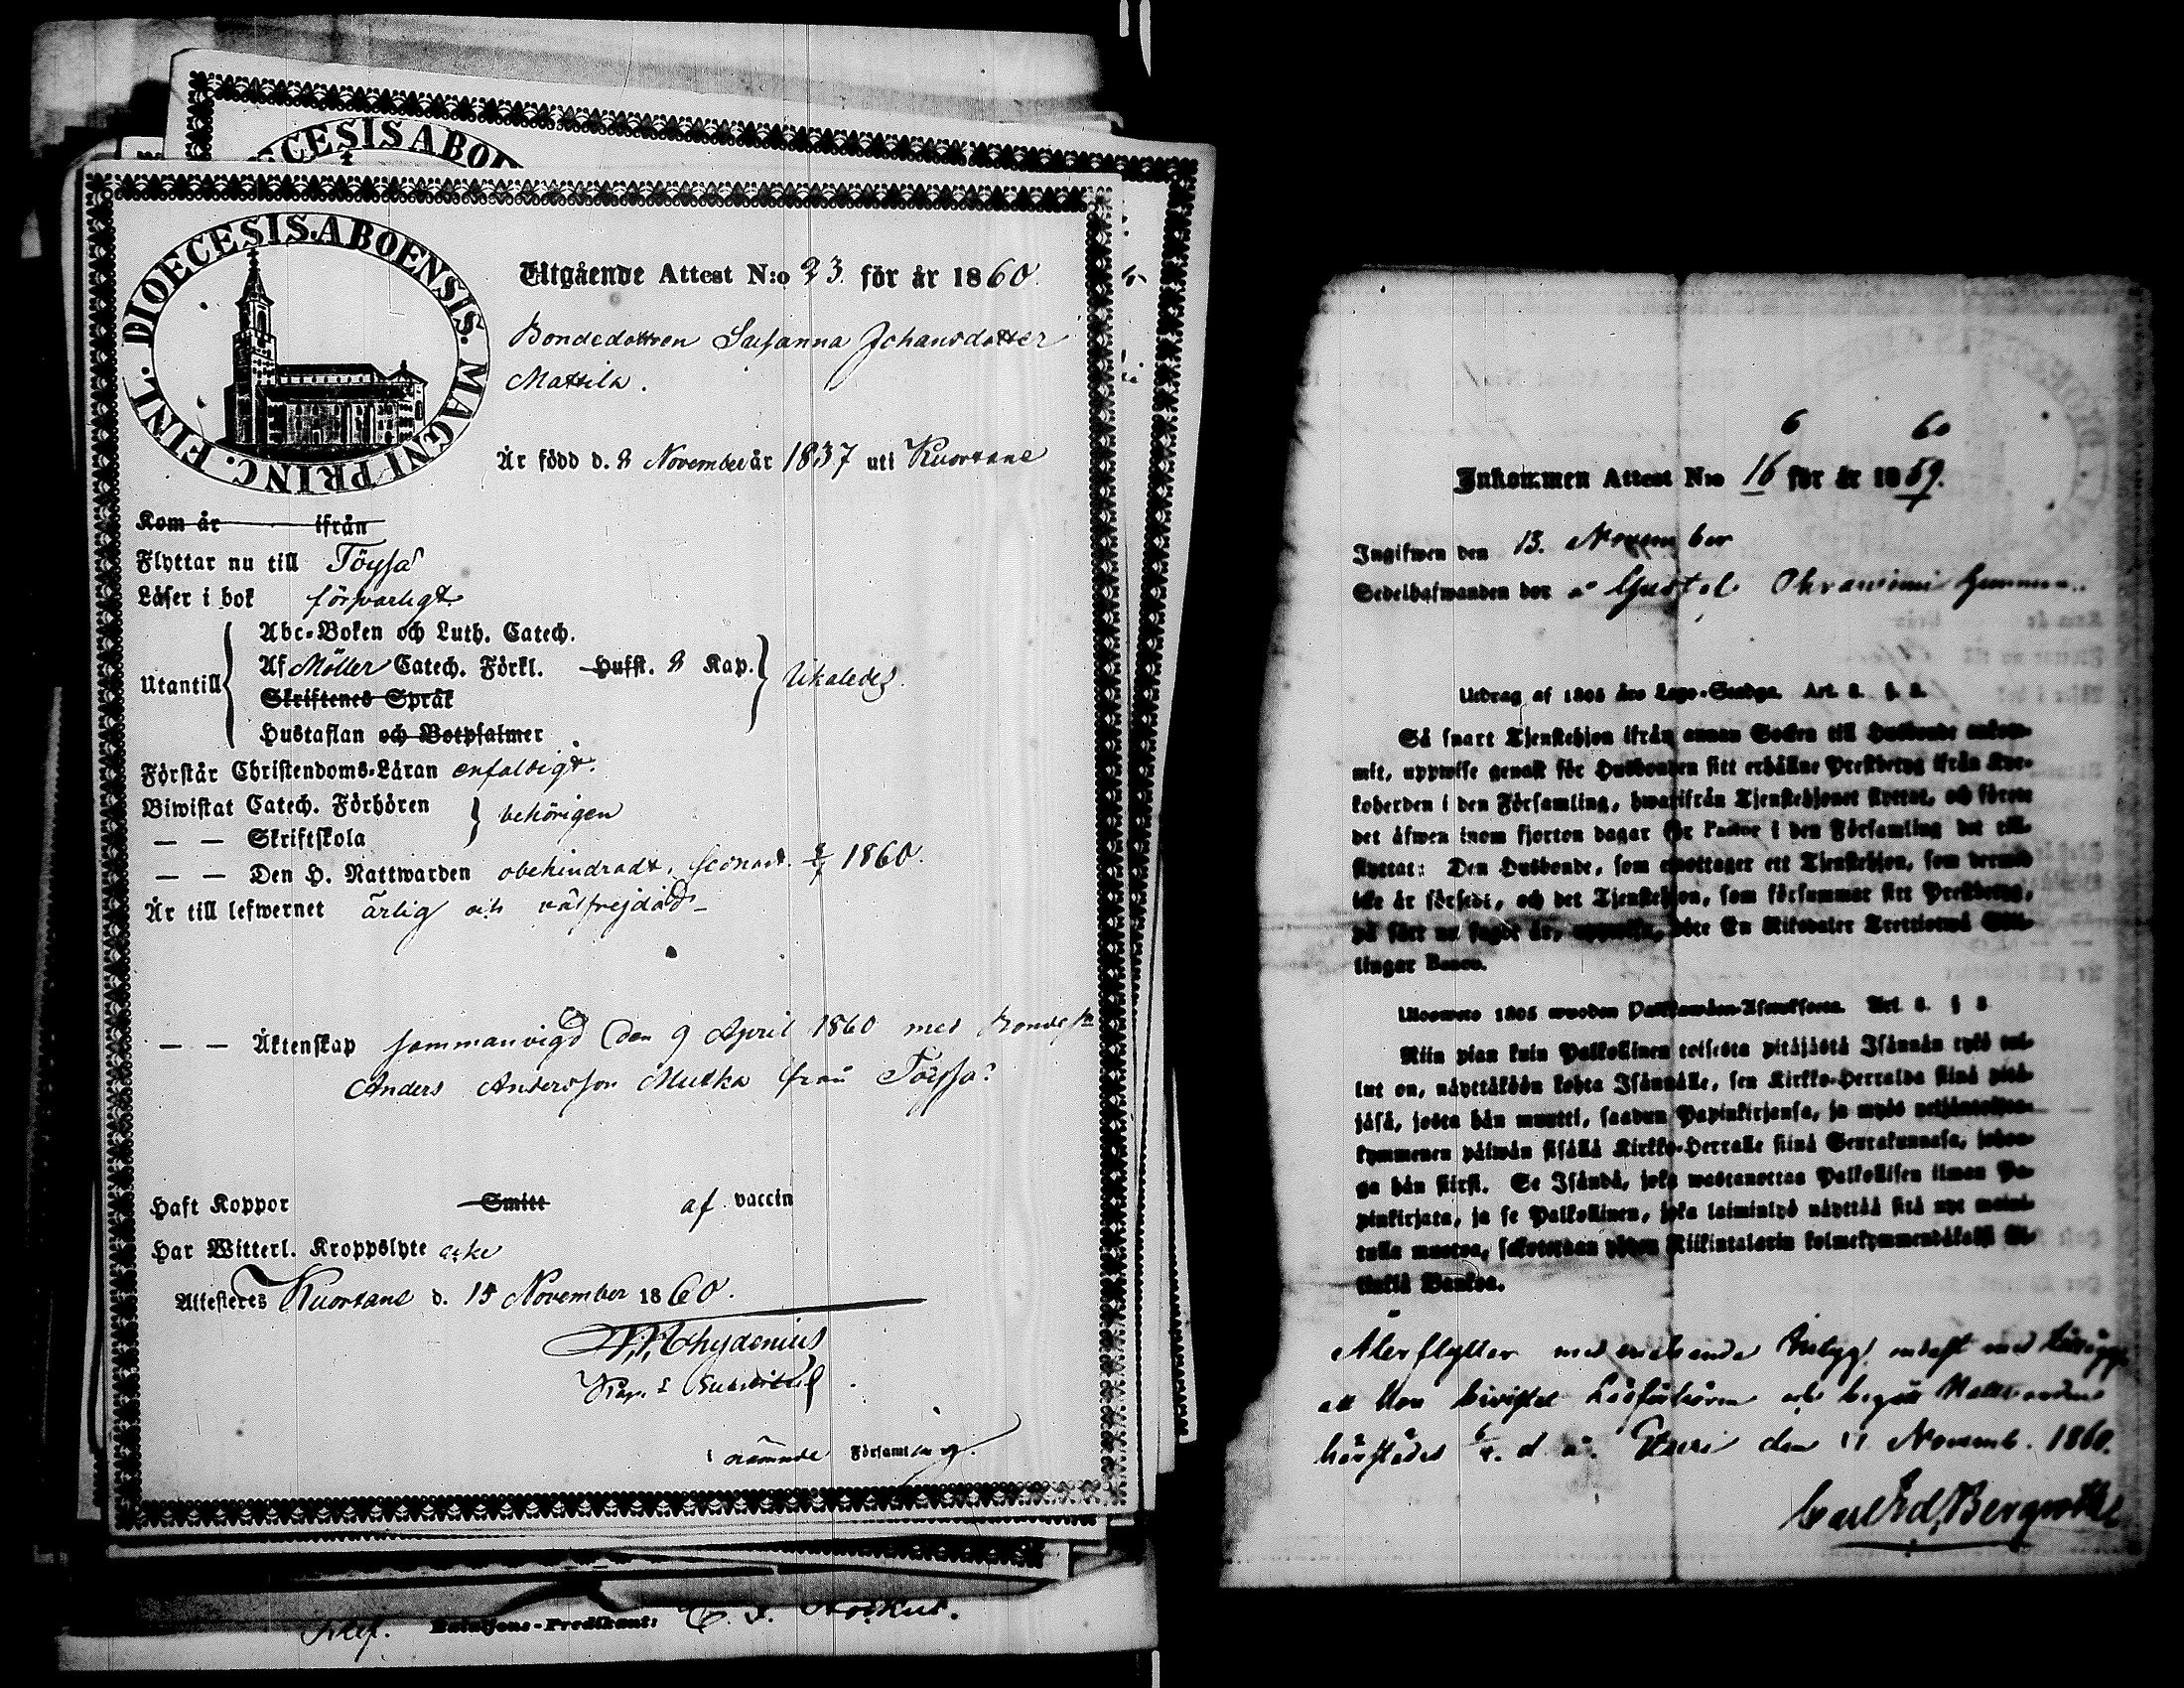 CESIS ABOE
DIOECESIS. ABOENSIS. MAGNI PRINC. FINL.
Utgående Attest N:o 23. för år 1860.
Bondedottren Susanna Johansdotter
Mattila.
Är född d. 8 November år 1837 uti Kuortane
Kom år ifrån
Flyttar nu till Töysä
Läser i bok försvarligt
Utantill
Abc-Boken och Luth. Catech.
Af Möller Catech. Förkl. Hufst. 8 Kap.
Skriftenes Språk
Hustaflan och Botpsalmer
Förstår Christendoms-Läran enfaldigt.
Biwistat Catech. Förhören
— — Skriftskola
behörigen
— — Den H. Nattwarden obehindradt, 1860.
Är till lefwernet ärlig och välfrejdad
— — Äktenskap sammanvigd den 9 April 1860 med
Anders Andersson från Töysä
Haft Koppor Smitt af vaccin
Har Witterl. Kroppslyte icke
Attesteres Kuortane d. 15 November 1860.
Chydenius
i nämnde Församling.
Bataljons-Predikant:
6 60
Inkommen Attest N:o 16 för år 1859.
Ingifwen den 13. November
Sedelhafwanden bor å
Utdrag af 1805 års Lego-Stadga. Art. 2. §. 2.
Så snart Tjenstehjon ifrån annan Socken till Husbonde ankom-
mit, uppwise genast för Husbonden sitt erhållne Prestbetyg ifrån Kyr-
koherden i den Församling, hwarifrån Tjenstehjonet flyttat, och förete
det äfwen inom fjorton dagar för Pastor i den Församling det till-
flyttat: Den Husbonde, som emottager ett Tjenstehjon, som dermed
icke är försedt, och det Tjenstehjon, som försummar sitt Prestbetyg,
på sätt nu sagdt är, uppwisa, böte En Riksdaler Trettiotwå Skil-
lingar Banco.
1805 wuoden Art. 2. § 2
Niin pian kuin Palkollinen toisesta pitäjästä Isännän tykö tul-
lut on, näyttäköön kohta Isännälle, sen Kirkko-Herralda siinä pitä-
jäsä, josta hän muutti, saadun Papinkirjansa, ja myös neljäntoista-
kymmenen päiwän sisällä Kirkko-Herralle siinä Seurakunnasa, johon-
ga hän siirsi. Se Isändä, joka wastanottaa Palkollisen ilman Pa-
pinkirjata, ja se Palkollinen, joka laiminlyö näyttää sitä nyt maini-
tulla muotoa, sakotetaan yhden Riikintalarin kolmekymmendäkaksi Ki-
linkiä Bankoa.
Återflyttar med enahanda Betyg endast med tillägg
att Hon bivistat Läsförhören och begått Nattvarden
härstädes d. å. Etseri den 11 Novemb. 1860.
Carl Ed. Bergroth